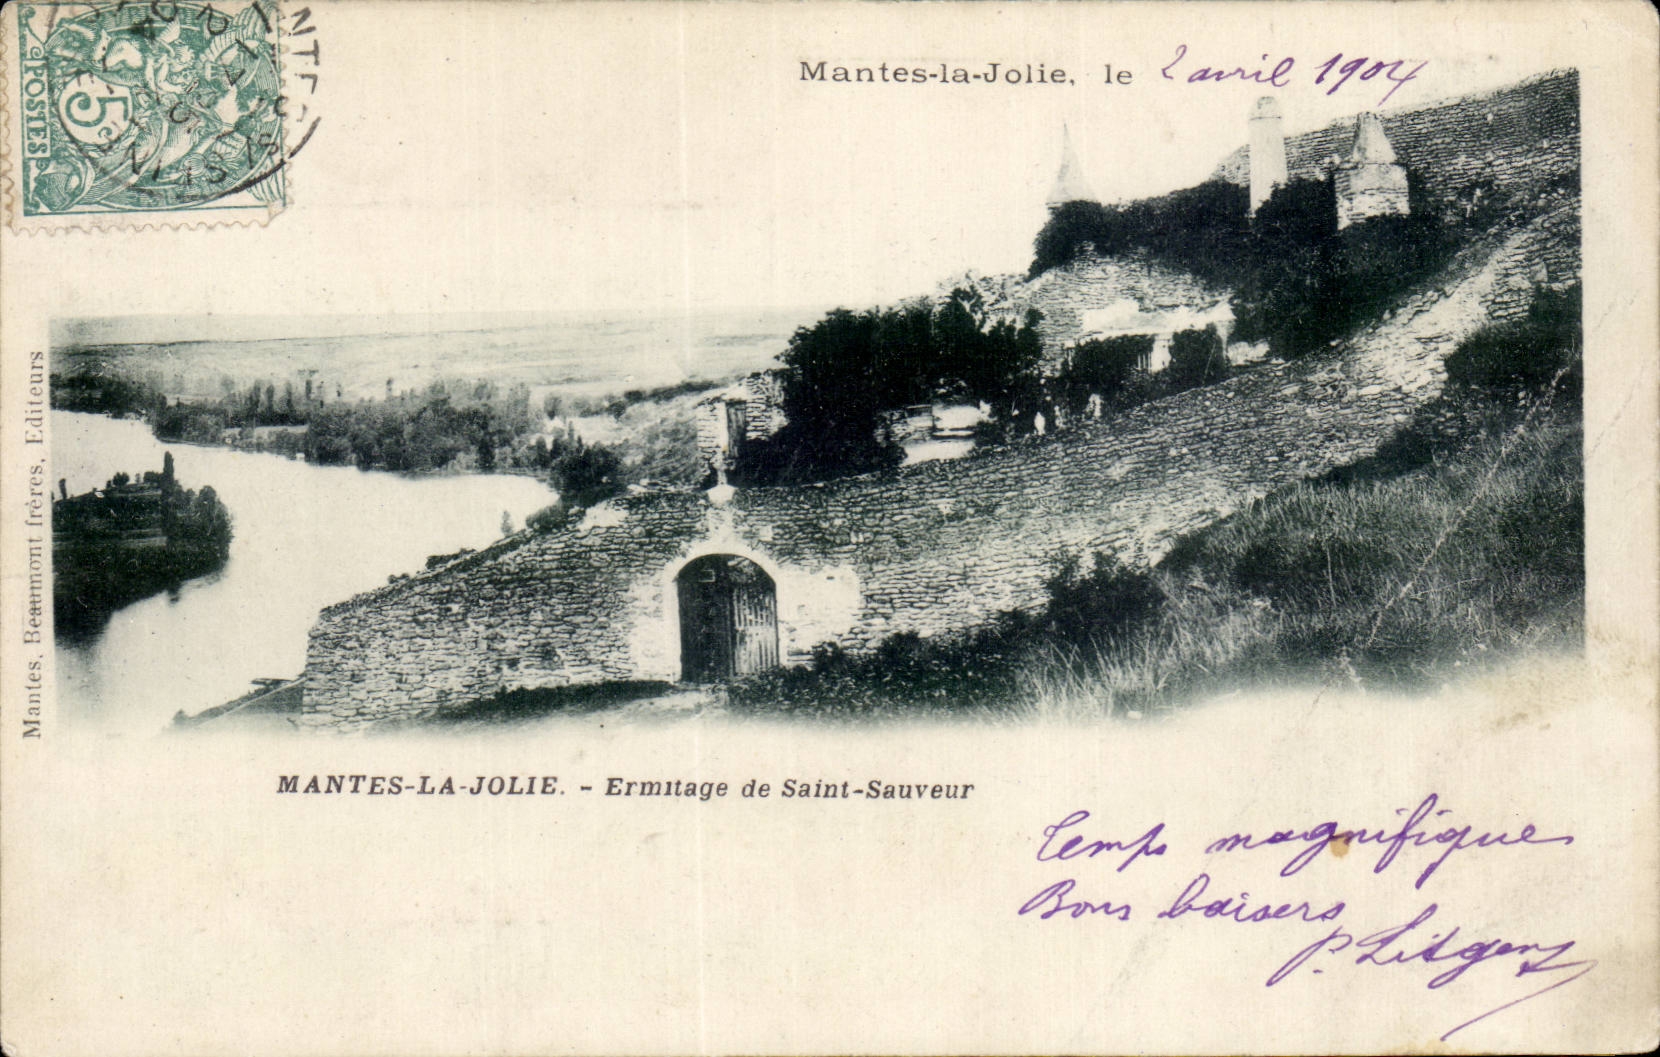 POSTES
5
Mantes-la-Jolie, le 2 avril 1904
Mantes. Beaumont frères, Editeurs
MANTES-LA-JOLIE. - Ermitage de Saint-Sauveur
Temps magnifique
Bons baisers
P.